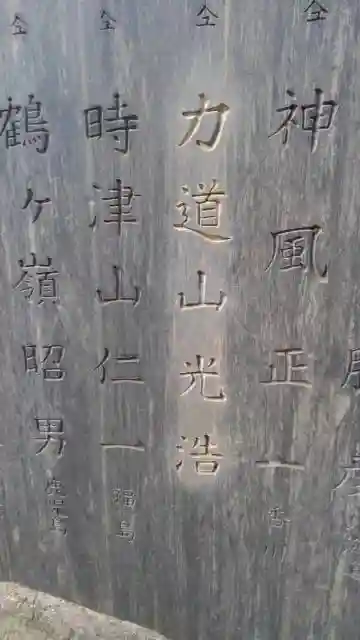 仝 神風正一 香川
仝 力道山光浩
仝 時津山仁一 福島
仝 鶴ケ嶺昭男